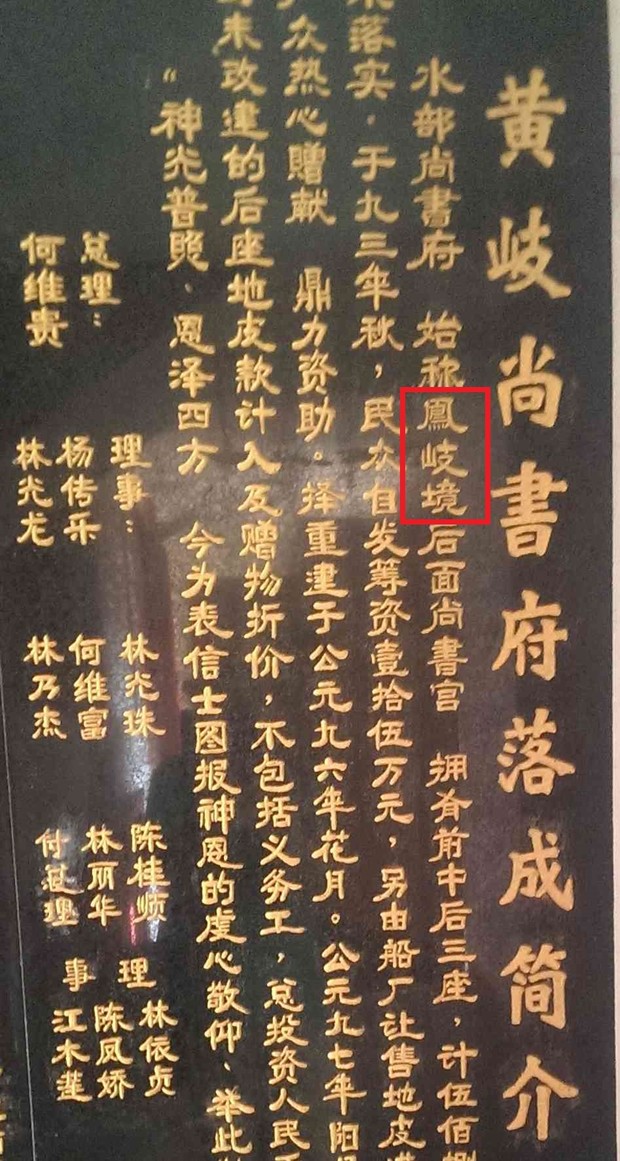 黄岐尚書府落成简介
水部尚書府 始称鳳岐境后面尚書宫 拥有前中后三座，计伍佰捌
落实．于九三年秋，民众自发筹资壹拾伍万元，另由船厂让售地皮
众热心赠献 鼎力资助。择重建于公元九六年花月。公元九七年阳
未改建的后座地皮款计入及赠物折价，不包括义务工，总投资人民币
“神光普照、恩泽四方 今为表信士图报神恩的虔心敬仰、举此
总理：
何维贵
理事：
杨传乐
林光龙
林光珠
何维富
林乃杰
陈桂顺
林丽华
付总理
理事
林依贞
陈凤娇
江木莲